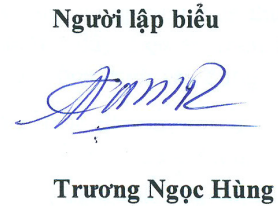 Người lập biểu
Trương Ngọc Hùng